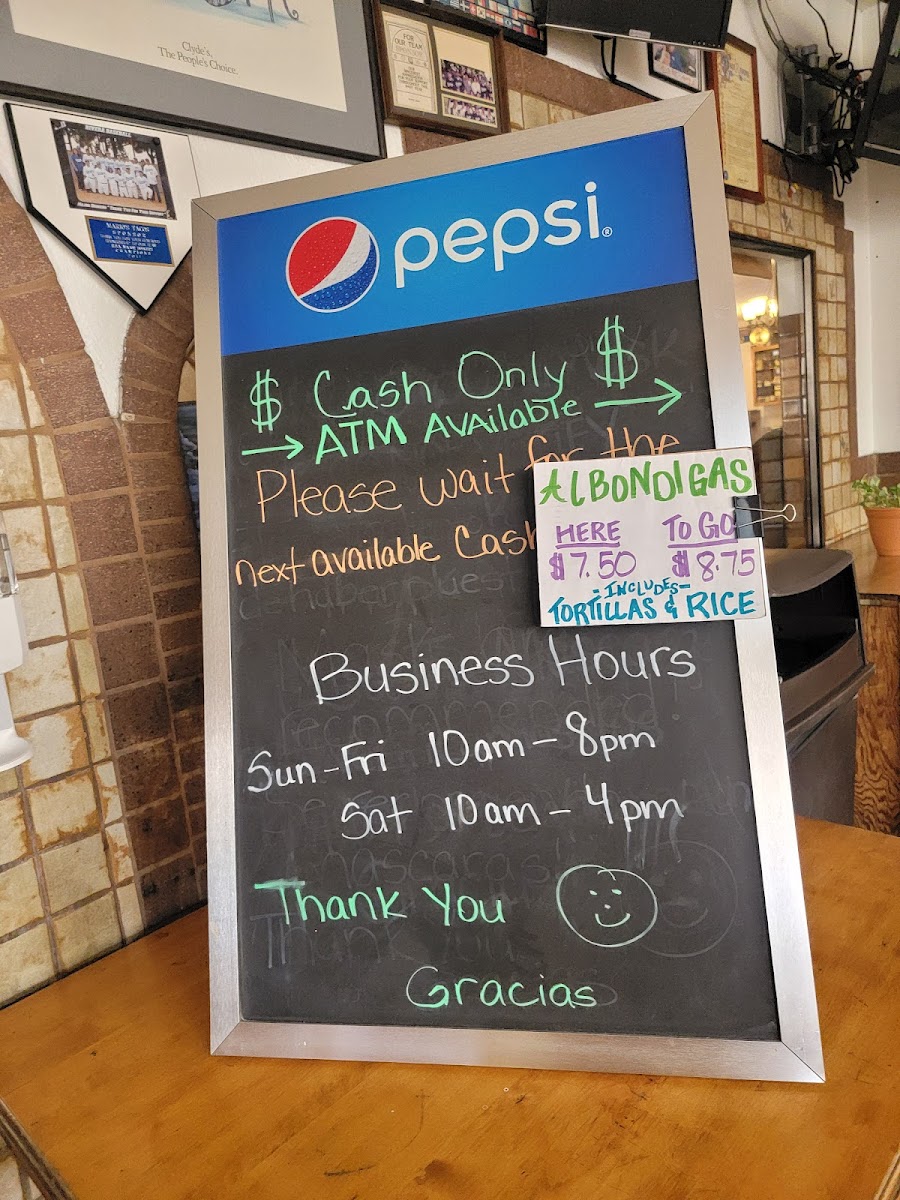 Clyde's,
The People's Choice.
FOR
OUR TEAM
pepsi®
$ Cash Only $
→ ATM AVAilable →
Please wait for the
next available Cash
ALBONDIGAS
HERE TO GO
$7.50 $8.75
-INCLUDES-
TORTILLAS & RICE
Business Hours
Sun-Fri 10am - 8pm
Sat 10am - 4pm
Thank You
Gracias